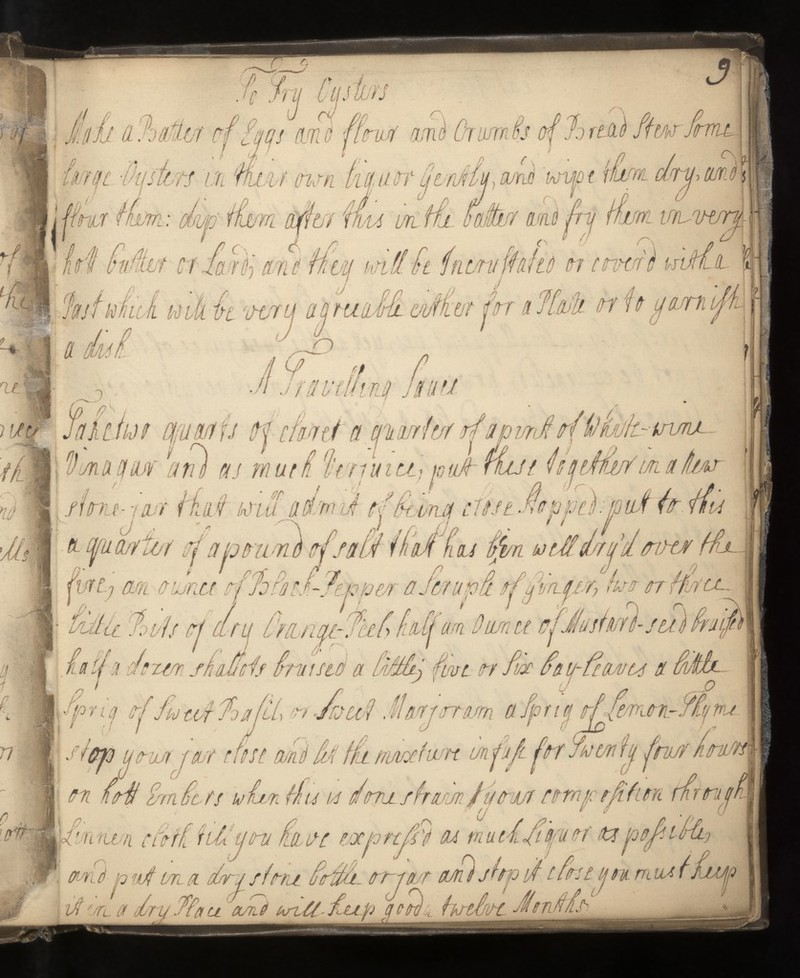 9
To Fry Oysters
Make a Batter of Eggs and flour and Crumbs of Bread Stew Some
large Oysters in their own liquor Gently, and wipe them dry, and
flour them: dip them after this in the batter and fry them in very
hott butter or Lard; and they will be Incrustated or coverd with a
Past which will be very agreeable either for a Plate or to garnish
a dish
A Travelling Sauce
Take two quarts of claret a quarter of a pint of White-wine
Vinagar and as much Verjuice; put these together in a New
stone-jar that will admit of being close stopped: put to this
a quarter of a pound of salt that has b'en well dry'd over the
fire; an ounce of Black-Pepper a Scruple of Ginger, two or three
little Bits of dry Orange-Peel, half an Ounce of Mustard-seed bruised
half a dozen shallots brussed a little; five or Six bay-leaves a little
Sprig of Sweet Basil, or Sweet Marjoram a Sprig of Lemon-Thyme
stop your jar close and let the mixture infuse for Twenty four hours
on hott Embers when this is done strain your composition through
Linnen cloth till you have express'd as much Liquor as possible,
and put in a dry stone bottle or jar and stop it close you must keep
it in a dry Place and will keep good twelve Months